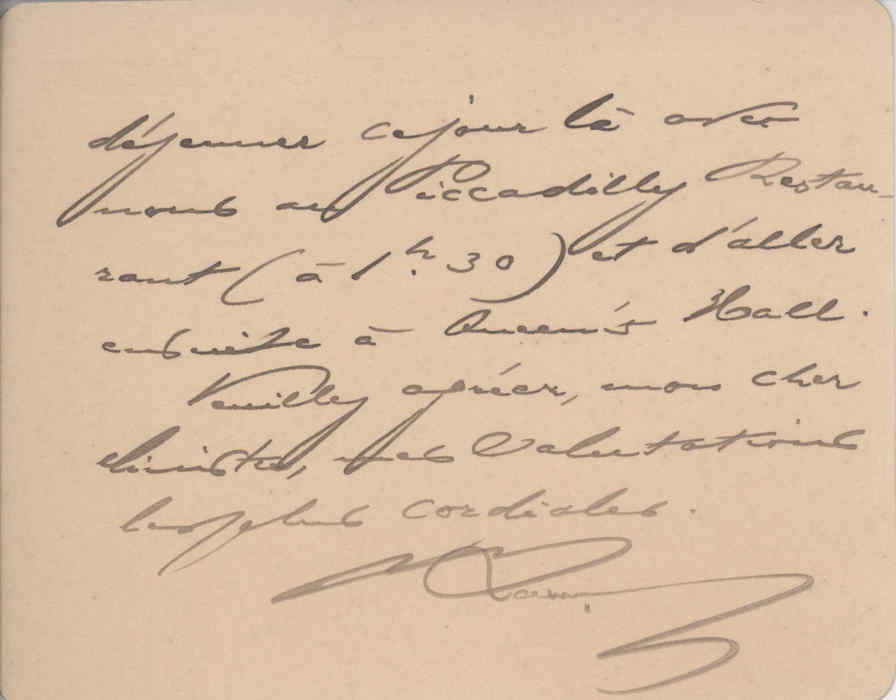 déjeuner ce jour là avec
nous au Piccadilly Restau-
rant (à 1 h. 30) et d'aller
ensuite à Queen's Hall.
Veuillez agréer, mon cher
Ministre, mes salutations
les plus cordiales.